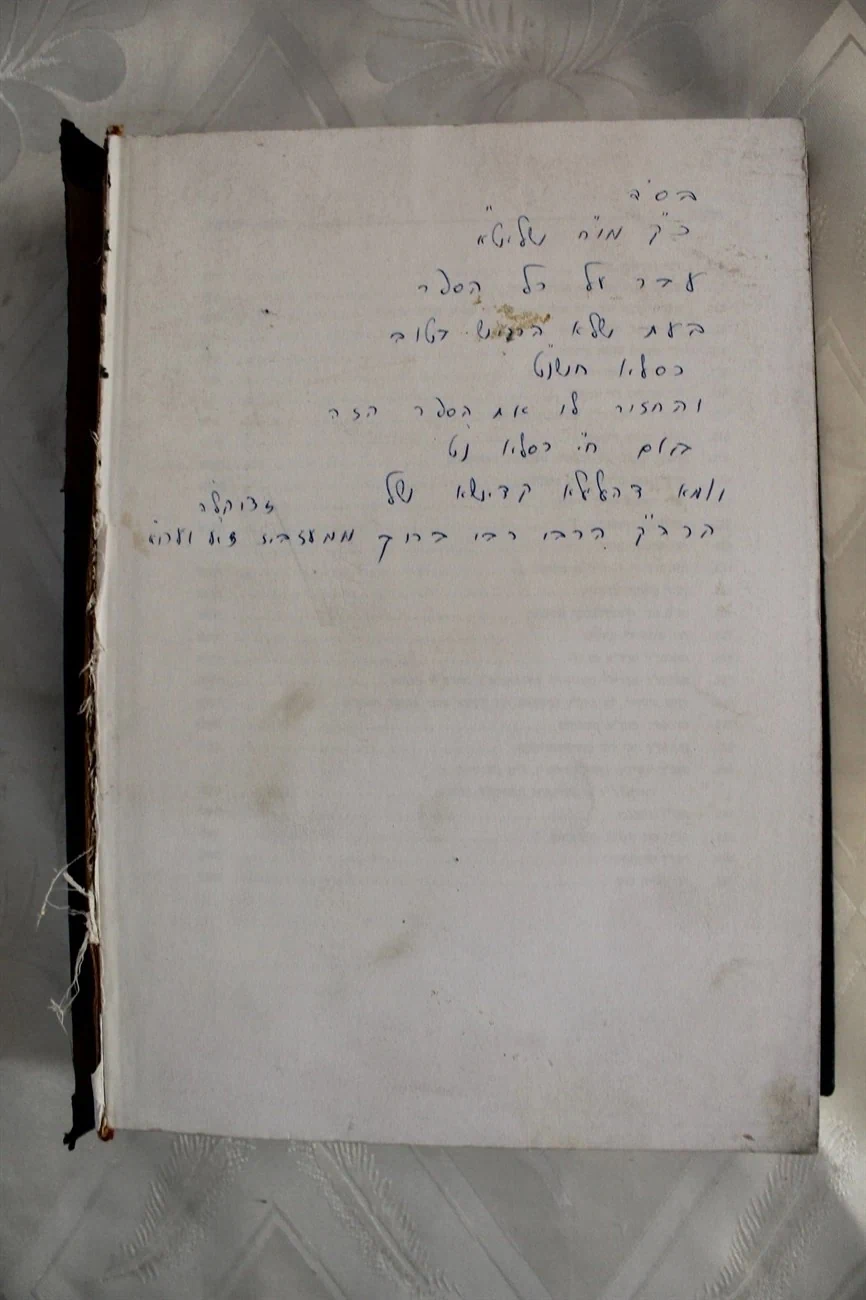 בס"ד
כ"ק מו"ח שליט"א
עבר על כל הספר
בעת שלא הרגיש בטוב
כסליו תשנ"ט
והחזיר לו את הספר הזה
ביום ח"י כסליו נט
יומא דהילולא קדישא של
הרה"ק הרבי רבי ברוך ממעזביז זי"ע ועכי"א